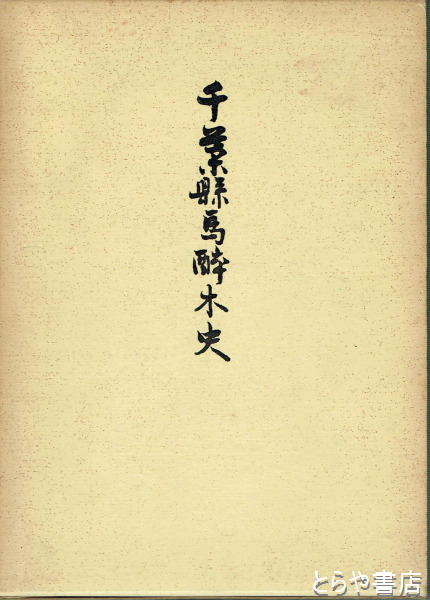 千葉縣馬醉木史
とらや書店